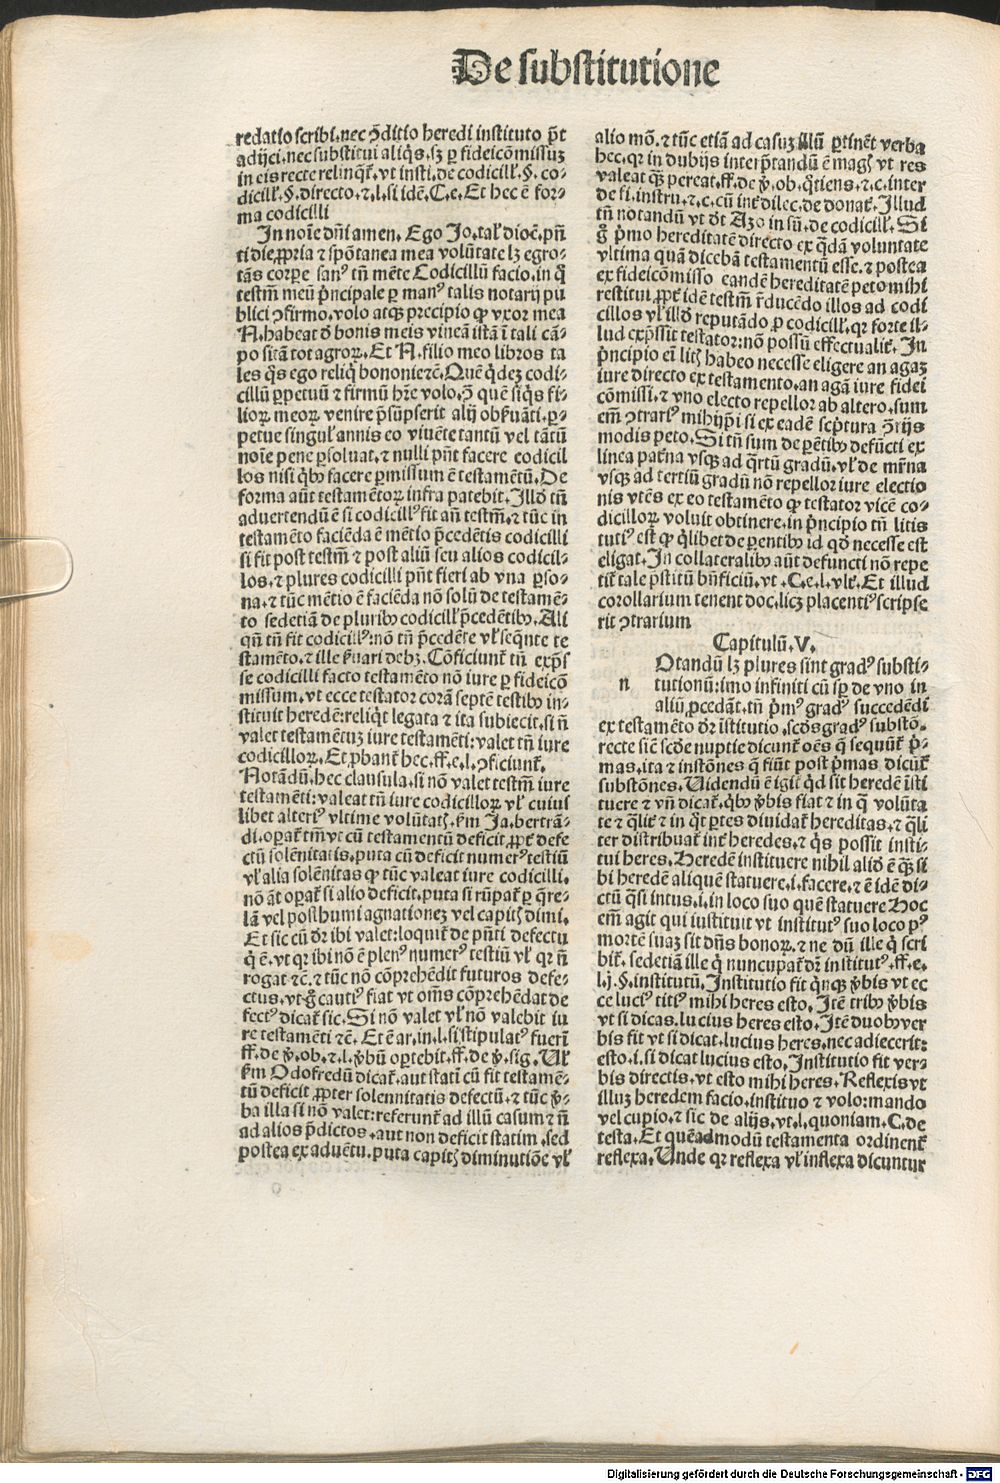 De substitutione
redatio scribi. nec ꝯditio heredi instituto pn̄t
adijci. nec substitui aliqͥs. sꝫ ꝑ fideicōmissuꝫ
in eis recte relinqͣt̄. vt insti. de codicill̄. §. co⸗
dicill̄. §. directo. ⁊. l. si idē. C. e. Et hec ē for⸗
ma codicilli
In noīe dn̄i amen. Ego Jo. tal̄ dioc̄. pn̄
ti die. ꝓpria ⁊ spōtanea mea volūtate lꝫ egro⸗
tās corꝑe sanꝰ tn̄ mēte Codicillū facio. in qͦ
testm̄ meū pͥncipale ꝑ manꝰ talis notarij pu
blici ꝯfirmo. volo atqꝫ precipio ꝙ vxor mea
N. habeat d̄ bonis meis vineā istā ī tali cā⸗
po sitā tot agroꝝ. Et N. filio meo libros ta
les qͦs ego reliqͥ bononie ⁊c̄. Quē qͥdeꝫ codi⸗
cillū ꝑpetuū ⁊ firmū hr̄e volo. ꝯ quē siqͥs fi⸗
lioꝝ meoꝝ venire pͣsūpserit alij obẜuāti. ꝑ⸗
petue singul̄ annis eo viuēte tantū vel tātū
noīe pene ꝑsoluat. ⁊ nulli pn̄t facere codicil
los nisi qͥbꝰ facere ꝑmissum ē testamētū. De
forma aūt testamētoꝝ infra patebit. Illd̄ tn̄
aduertendū ē si codicillꝰ fit an̄ testm̄. ⁊ tūc in
testamēto faciēda ē mētio pͣcedētis codicilli
si fit post testm̄ ⁊ post aliū seu alios codicil⸗
los. ⁊ plures codicilli pn̄t fieri ab vna ꝑso⸗
na. ⁊ tūc mētio ē faciēda nō solū de testamē⸗
to sed etiā de pluribꝰ codicill̄ pͣcedētibꝰ. Ali
qn̄ tn̄ fit codicillꝰ: nō tn̄ pͣcedēte vl̄ seqͣnte te
stamēto. ⁊ ille ẜuari debꝫ. Cōficiunt̄ tn̄ expͣs
se codicilli facto testamēto nō iure ꝑ fideicō
missum. vt ecce testator corā septē testibꝰ in⸗
stituit heredē: reliqͥt legata ⁊ ita subiecit. si n̄
valet testamētuꝫ iure testamēti: valet tn̄ iure
codicilloꝝ. Et ꝓbant̄ hec. ff. e. l. ꝯficiunt̄.
Notādū. hec clausula. si nō valet testm̄ iure
testamēti: valeat tn̄ iure codicilloꝝ vl̄ cuius
libet alteriꝰ vltime volūtatꝭ. ẜm Ja. bertrā⸗
di. oꝑat̄ tm̄ vt cū testamentū deficit ꝓpt̄ defe
ctū solēnitatis. puta cū deficit numerꝰ testiū
vl̄ alia solēnitas ꝙ tūc valeat iure codicilli.
nō āt oꝑat̄ si alio deficit. puta si rūpat̄ ꝑ qͣre⸗
lā vel posthumi agnationeꝫ vel capitꝭ dimi.
Et sic cū dr̄ ibi valet: loquit̄ de pn̄ti defectu
qͥ ē. vt qꝛ ibi nō ē plenꝰ numerꝰ testiū vl̄ qꝛ n̄
rogat ⁊c̄. ⁊ tūc nō cōprehēdit futuros defe⸗
ctus. vt gͦ cautiꝰ fiat vt om̄s cōprehēdat de
fectꝰ dicat̄ sic. Si nō valet vl̄ nō valebit iu
re testamēti ⁊c̄. Et ē ar. in. l. si stipulatꝰ fuerī
ff. de v̄. ob. ⁊. l. v̄bū oportebit. ff. de v̄. sig. Vl̄
ẜm Odofredū dicat̄. aut statī cū fit testamē⸗
tū deficit ꝓpter solennitatis defectū. ⁊ tūc v̄⸗
ba illa si nō valet: referunt̄ ad illū casum ⁊ n̄
ad alios pͣdictos. aut non deficit statim. sed
postea ex aduētu. puta capitꝭ diminutiōe vl̄
alio mō. ⁊ tūc etiā ad casuꝫ illū ꝑtinēt verba
hec. qꝛ in dubijs interpͣtandū ē magꝭ vt res
valeat qͣꝫ pereat. ff. de v̄. ob. qͦtiens. ⁊. c. inter
de fi. instru. ⁊. c. cū int̄ dilec. de donat̄. Illud
tn̄ notandū vt dt̄ Azo in sū. de codicill̄. Si
gͦ pͥmo hereditatē directo ex qͣdā voluntate
vltima quā dicebā testamentū esse. ⁊ postea
ex fideicōmisso eandē hereditatē peto mihi
restitui. ꝓpt̄ idē testm̄ r̄ducēdo illos ad codi
cillos vl̄ illd̄ reputādo ꝓ codicill̄. qꝛ forte il⸗
lud expͣssit testator: nō possū effectualit̄. In
pͥncipio em̄ litꝭ habeo necesse eligere an agaꝫ
iure directo ex testamento. an agā iure fidei
cōmissi. ⁊ vno electo repellor ab altero. sum
em̄ ꝯtrariꝰ mihijpͥi si ex eadē scpͥtura ꝯrijs
modis peto. Si tn̄ sum de parētibꝰ defūcti ex
linea pat̄na vsqꝫ ad qͣrtū gradū. vl̄ de mr̄na
vsqꝫ ad tertiū gradū nō repellor iure electio
nis vtēs ex eo testamēto ꝙ testator vicē co⸗
dicilloꝝ voluit obtinere. in pͥncipio tn̄ litis
tutiꝰ est ꝙ qͥlibet de parentibꝰ id qd̄ necesse est
eligat. In collateralibꝰ aūt defuncti nō repe
rit̄ tale pͥstitū bn̄ficiū. vt. C. e. l. vlt̄. Et illud
corollarium tenent doc. licꝫ placentiꝰ scripse
rit ꝯtrarium
Capitulū. V.
n
Otandū lꝫ plures sint gradꝰ substi⸗
tutionū: imo infiniti cū sꝑ de vno in
aliū ꝓcedāt. tn̄ pͥmꝰ gradꝰ succedēdi
ex testamēto dr̄ īstitutio. scd̄s gradꝰ substō.
recte sicut scd̄e nuptie dicunt̄ oēs q̄ sequūt̄ pͥ⸗
mas. ita ⁊ instōnes q̄ fiūt post pͥmas dicūt̄
substōnes. Uidendū ē igit̄ qͥd sit heredē īsti
tuere ⁊ vn̄ dicat̄. qͥbꝰ v̄bis fiat ⁊ in qͣ volūta
te ⁊ qͣlit̄ ⁊ in qͦt ꝑtes diuidat̄ hereditas. ⁊ qͣli
ter distribuat̄ int̄ heredes. ⁊ qͥs possit insti⸗
tui heres. Heredē instituere nihil aliud ē qͣꝫ si
bi heredē aliquē statuere. i. facere. ⁊ ē idē di⸗
ctū qͣsi intus. i. in loco suo quē statuere Hoc
em̄ agit qui instituit vt institutꝰ suo loco pꝰ
mortē suaꝫ sit dn̄s bonoꝝ. ⁊ ne dū ille qͥ scri
bit̄. sed etiā ille qͥ nuncupat̄ dr̄ institutꝰ. ff. e.
l. j. §. institutū. Institutio fit qͥnqꝫ v̄bis vt ec
ce luciꝰ titiꝰ mihi heres esto. Itē tribꝰ v̄bis
vt si dicas. lucius heres esto. Itē duobꝰ ver
bis fit vt si dicat. lucius heres. nec adiecerit:
esto. i. si dicat lucius esto. Institutio fit ver⸗
bis directis. vt esto mihi heres. Reflexis vt
illuꝫ heredem facio. instituo ⁊ volo: mando
vel cupio. ⁊ sic de alijs. vt. l. quoniam. C. de
testa. Et quēadmodū testamenta ordinent̄
reflexa. Unde qꝛ reflexa vl̄ inflexa dicuntur
Digitalisierung gefördert durch die Deutsche Forschungsgemeinschaft - DFG